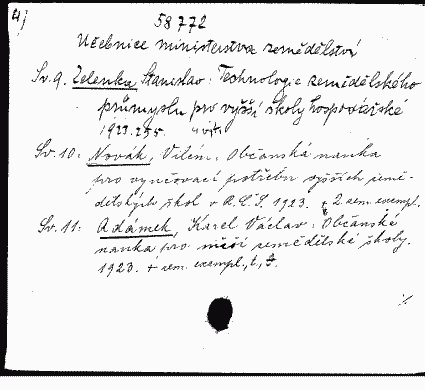 4)
58772
Učebnice ministerstva zemědělství
Sv. 9. Zelenka, Stanislav: Technologie zemědělského
průmyslu pro vyšší školy hospodářské
1923. 255
Sv. 10: Novák, Vilém: Občanská nauka
pro vyučovací potřebu vyšších země-
dělských škol v R.Č.S. 1923. + 2 sem. exempl.
Sv. 11: Adámek, Karel Václav: Občanská
nauka pro nižší zemědělské školy.
1923. + sem. exempl.,